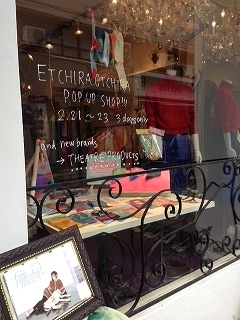 ETCHIRA OTCHIRA
POP UP SHOP!!!
2.21~23 3 days only
and new brands
→ THEATRE PRODUCTS